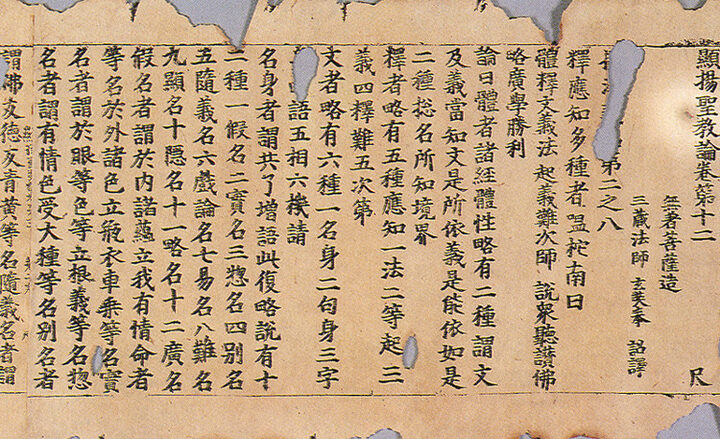 顯揚聖教論卷第十二 尺
無著菩薩造
三藏法師 玄奘奉 詔譯
第二之八
釋應知多種者嗢柁南曰
體釋文義法 起義難次師 說衆聽讚佛
略廣學勝利
論曰體者諸經體性略有二種謂文
及義當知文是所依義是能依如是
二種総名所知境界
釋者略有五種應知一法二等起三
義四釋難五次第
文者略有六種一名身二句身三字
語五相六機請
名身者謂共了增語此復略說有十
二種一假名二實名三惣名四別名
五隨義名六戲論名七易名八難名
九顯名十隱名十一略名十二廣名
假名者謂於內諸蘊立我有情命者
等名於外諸色立瓶衣車乘等名實
名者謂於眼等色等立根義等名惣
名者謂有情色受大種等名別名者
謂佛友德友青黃等名隨義名者謂